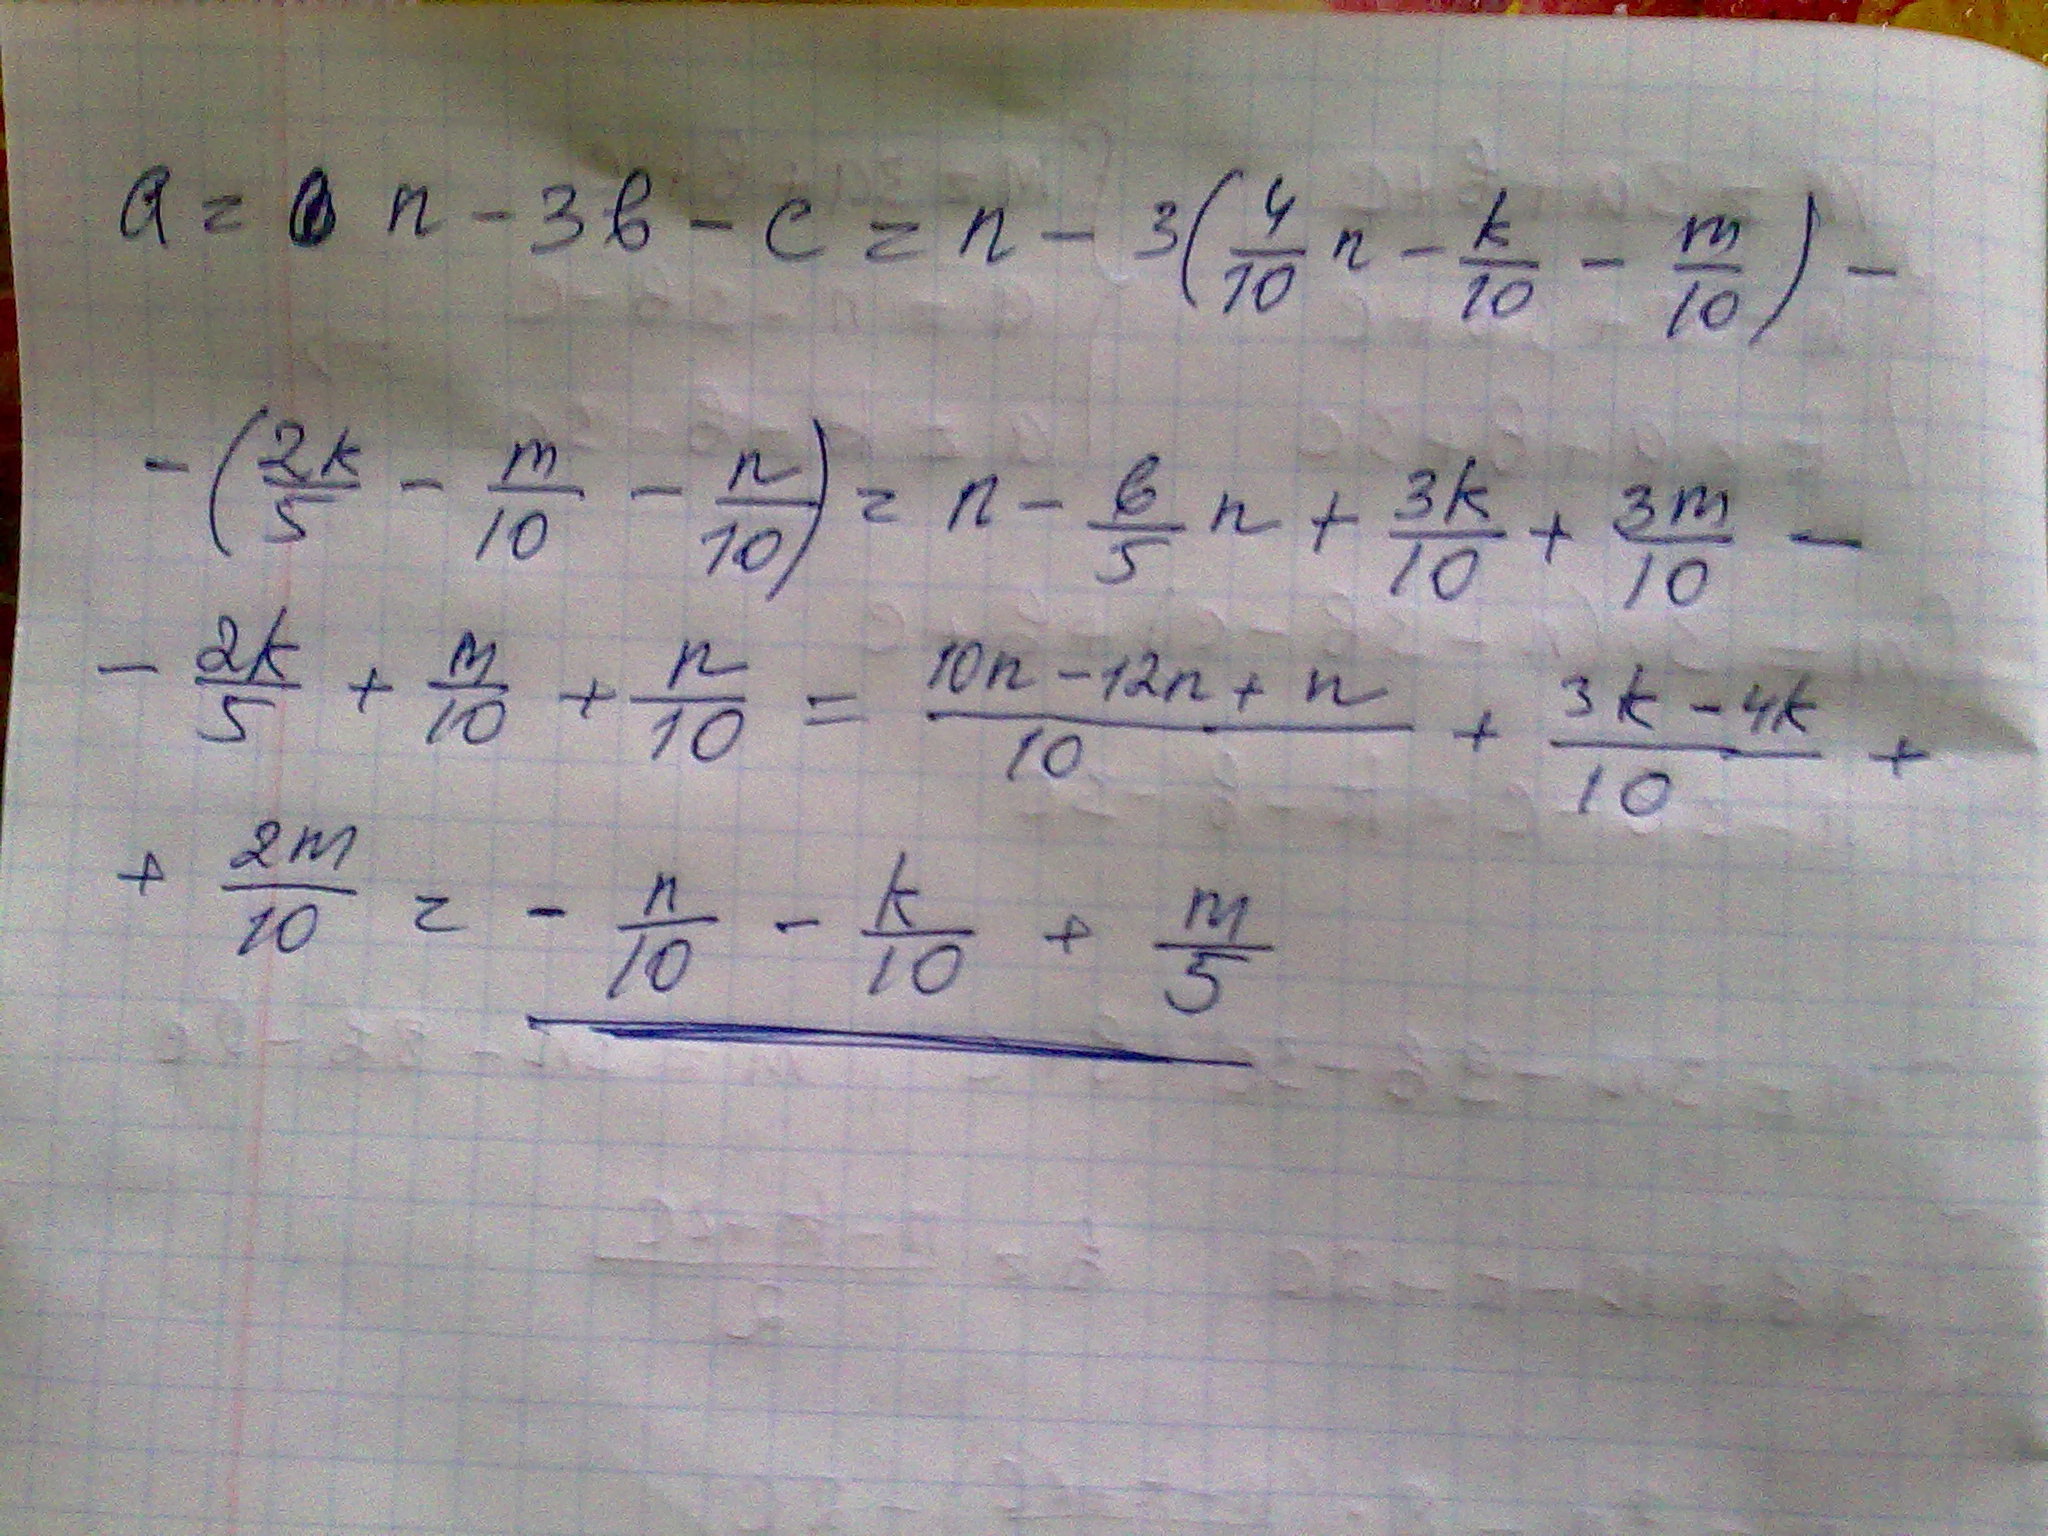 a = n - 3в - c = n - 3(4/10 n - k/10 - m/10) -
- (2k/5 - m/10 - n/10) = n - 6/5 n + 3k/10 + 3m/10 -
- 2k/5 + m/10 + n/10 = (10n - 12n + n)/10 + (3k - 4k)/10 +
+ 2m/10 = - n/10 - k/10 + m/5